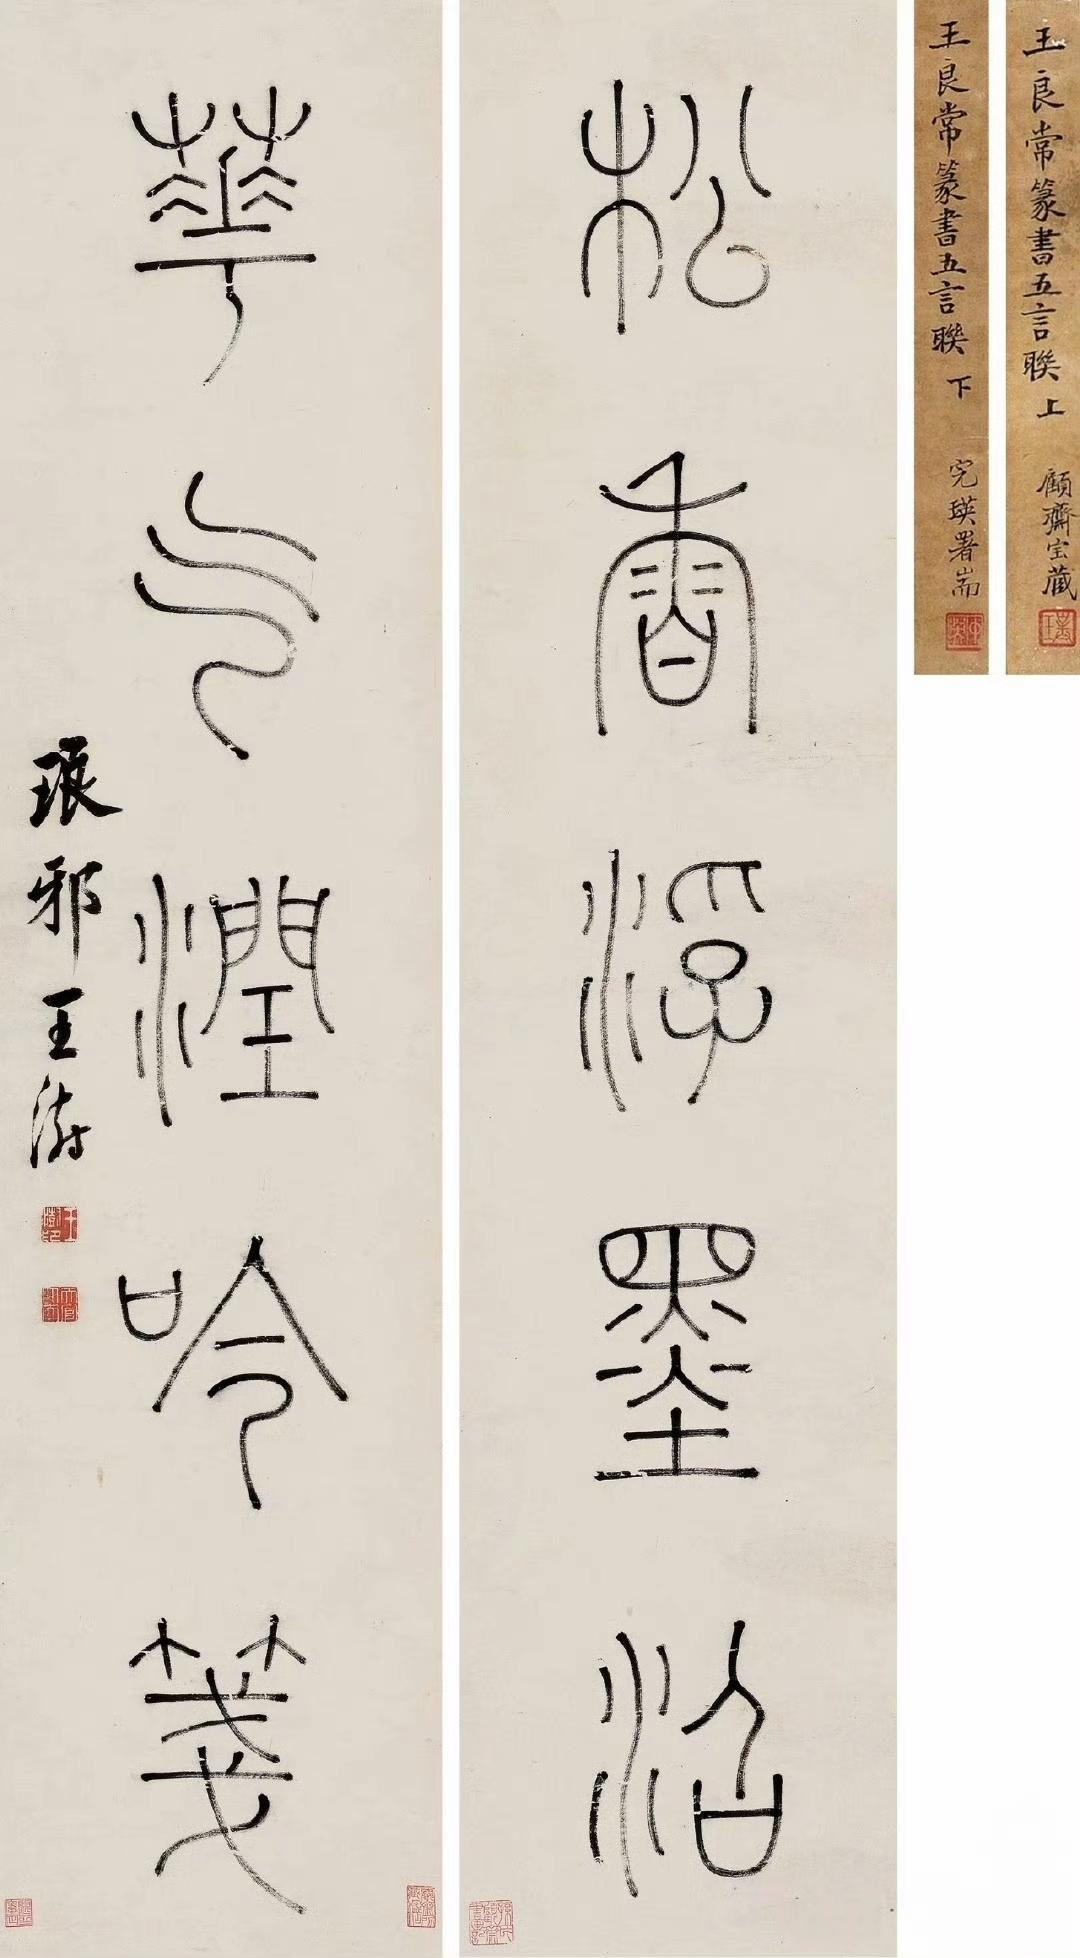 王良常篆書五言聯 上
顧齋宝藏
王良常篆書五言聯 下
完瑛署耑
松香浮墨沼
華气潤吟箋
琅邪王澍